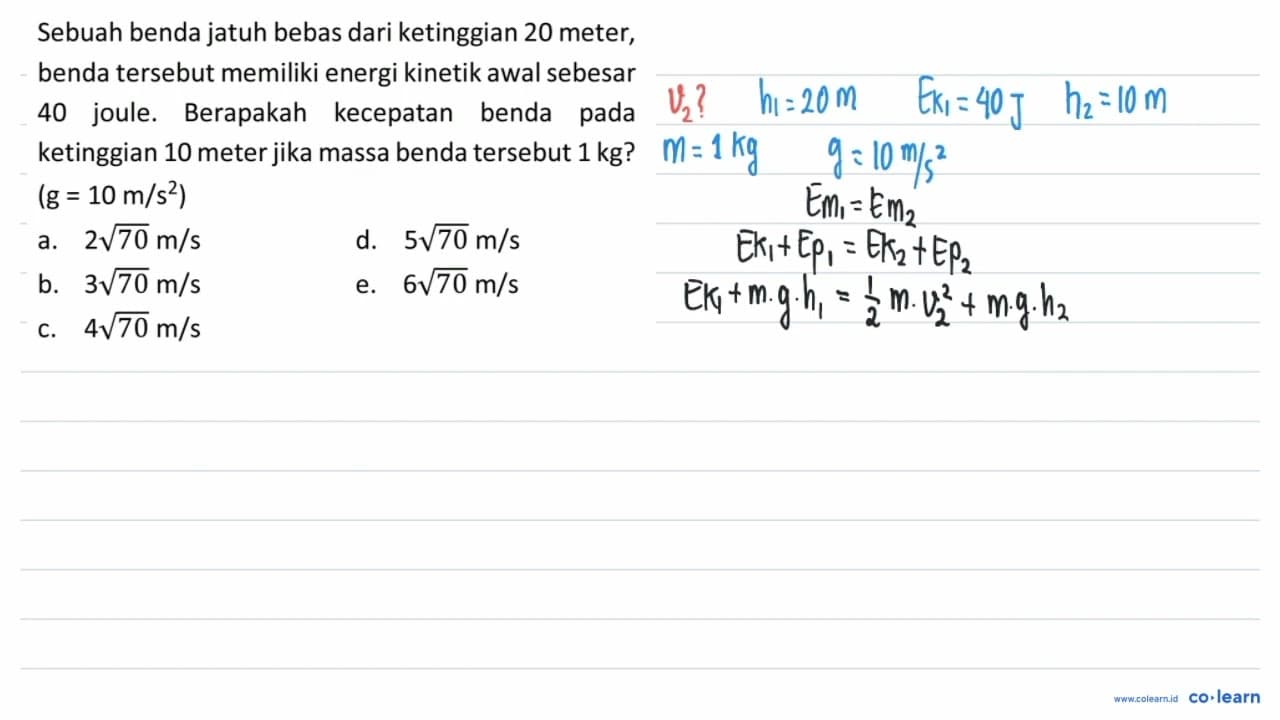 Sebuah benda jatuh bebas dari ketinggian 20 meter,
benda tersebut memiliki energi kinetik awal sebesar
40 joule. Berapakah kecepatan benda pada
ketinggian 10 meter jika massa benda tersebut 1 kg?
(g = 10 m/s²)
a. 2√70 m/s
b. 3√70 m/s
c. 4√70 m/s
d. 5√70 m/s
e. 6√70 m/s
v₂? h₁ = 20 m Ek₁ = 40 J h₂ = 10 m
m = 1 kg g = 10 m/s²
Em₁ = Em₂
Ek₁ + Ep₁ = Ek₂ + Ep₂
Ek₁ + m.g.h₁ = ½ m.v₂² + m.g.h₂
www.colearn.id co·learn